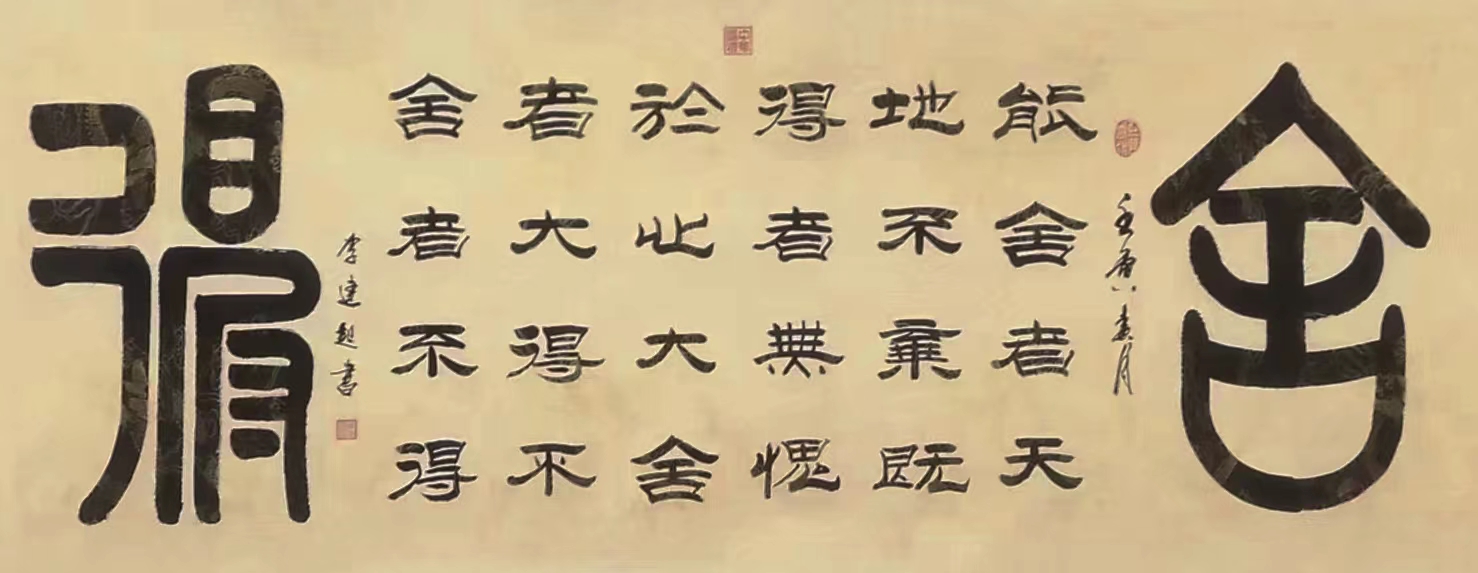 舍
壬寅春月
能舍者天
地不棄既
得者無愧
於此大舍
者大得不
舍者不得
李建超書
得